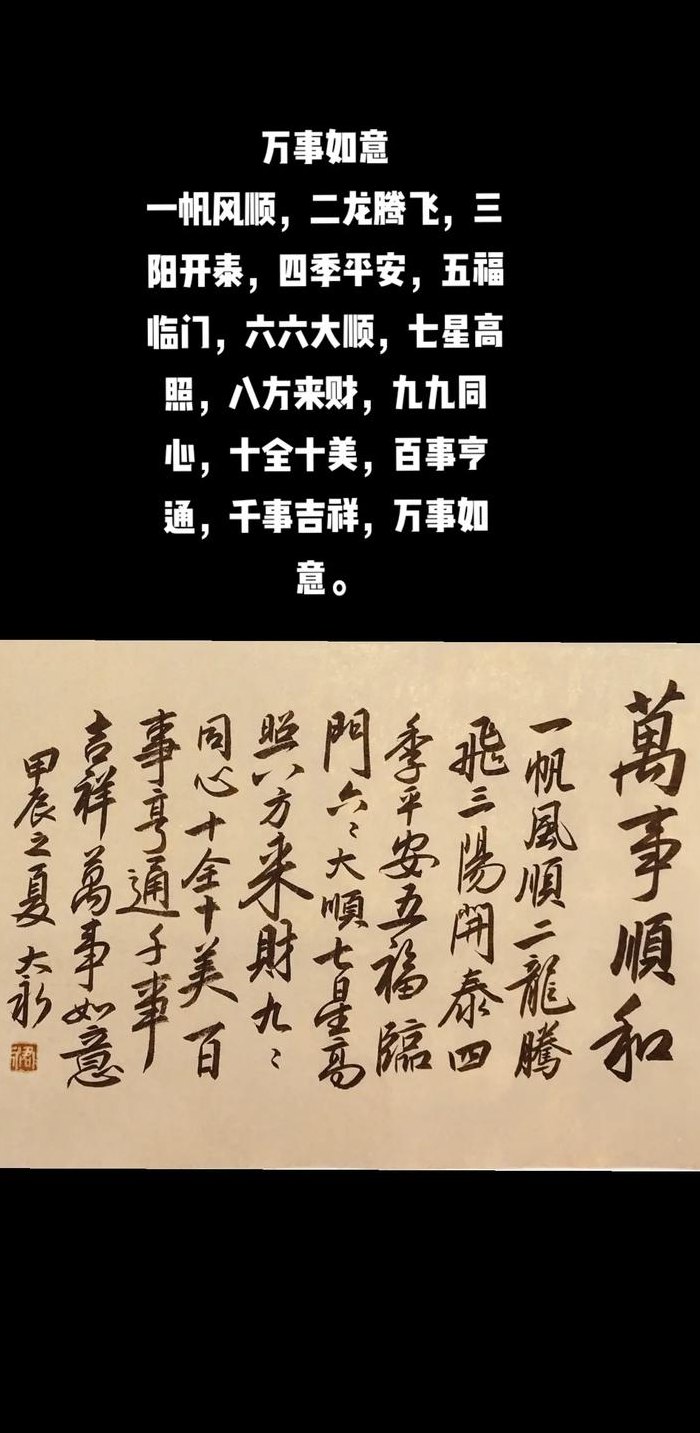 万事如意
一帆风顺，二龙腾飞，三
阳开泰，四季平安，五福
临门，六六大顺，七星高
照，八方来财，九九同
心，十全十美，百事亨
通，千事吉祥，万事如
意。
萬事順和
一帆風順二龍騰
飛三陽開泰四
季平安五福臨
門六〻大順七星高
照八方来財九〻
同心十全十美百
事亨通千事
吉祥萬事如意
甲辰之夏大永